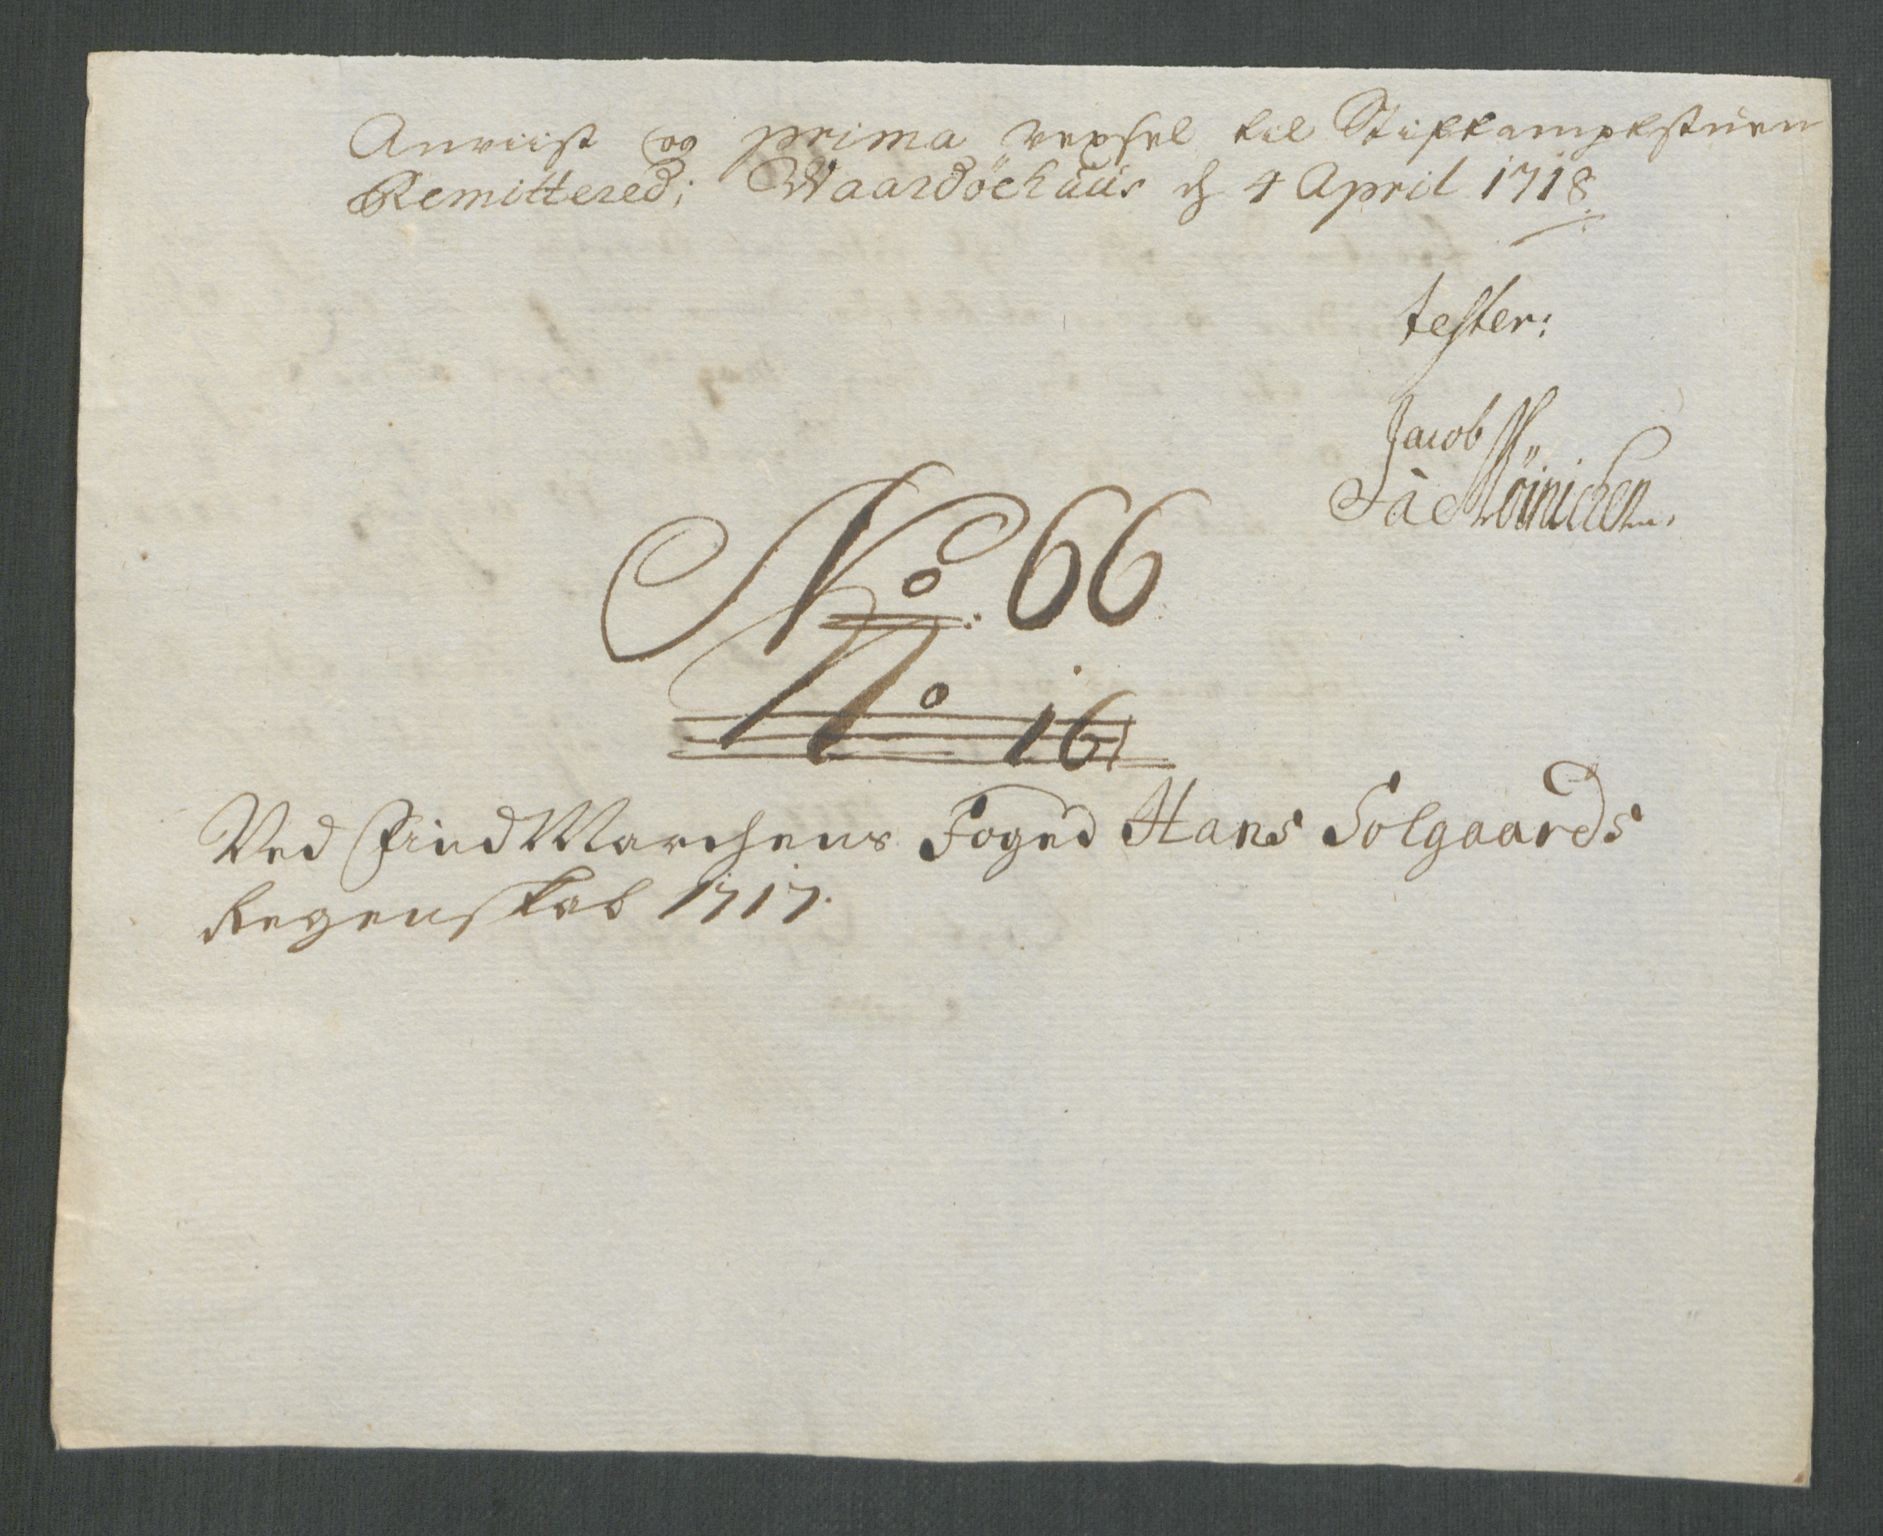 Anviist og prima vexsel til Stiftamptstuen
Remittered; Waardöehuus d 4 April 1718
tester:
Jacob
à Möinichen
No. 66
No 16
Ved FindMarchens Foged Hans Solgaards
Regenskab 1717.